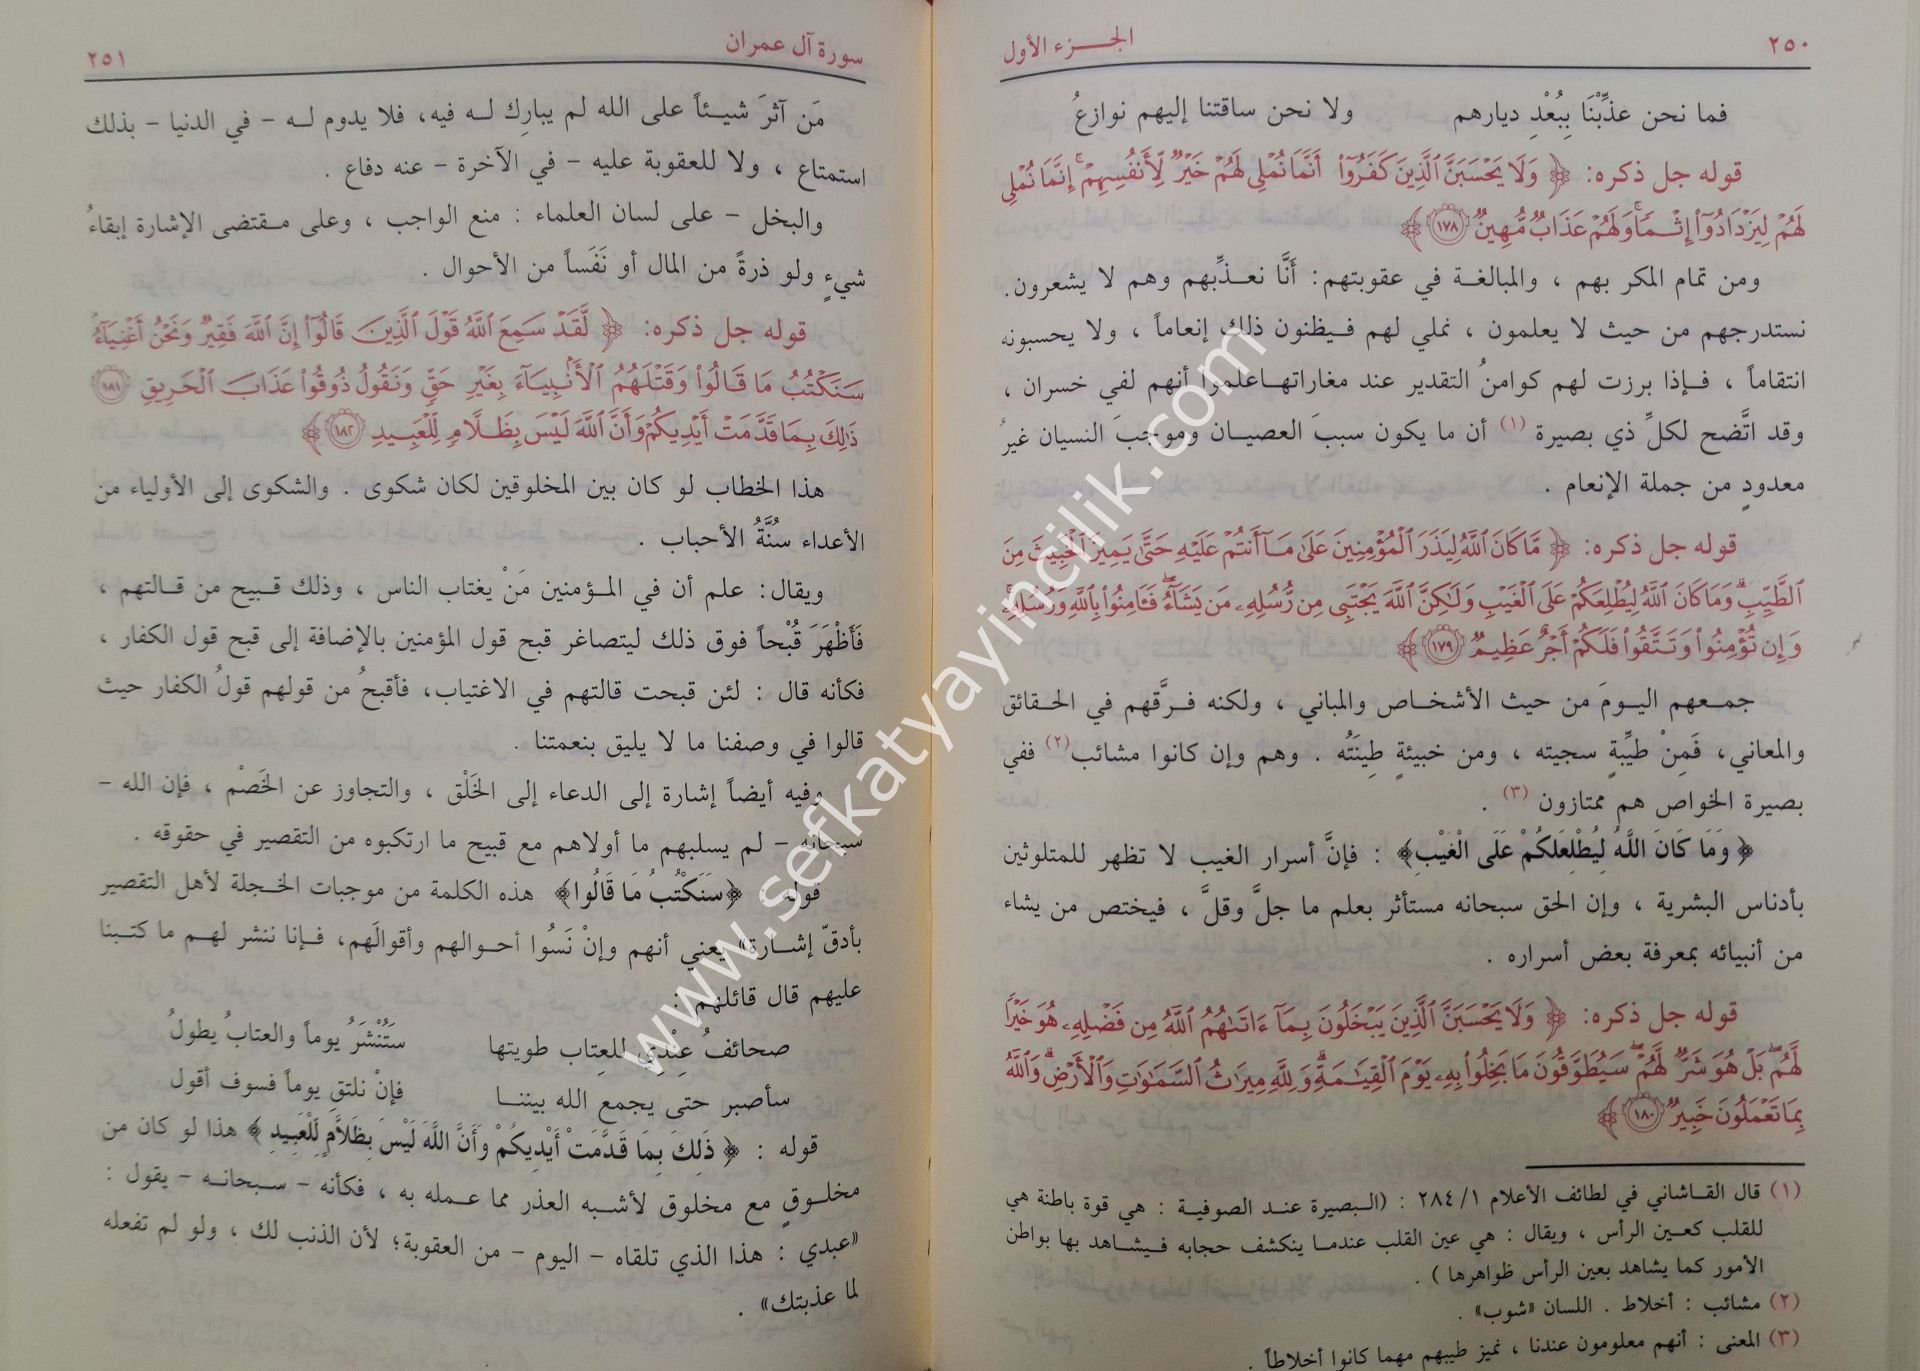 ٢٥٠
الجزء الأول
فما نحن عذِّبْنَا بِبُعْدِ ديارهم ولا نحن ساقتنا إليهم نوازعُ
قوله جل ذكره: ﴿ وَلَا يَحْسَبَنَّ ٱلَّذِينَ كَفَرُوٓاْ أَنَّمَا نُمْلِى لَهُمْ خَيْرٌ لِّأَنفُسِهِمْ إِنَّمَا نُمْلِى
لَهُمْ لِيَزْدَادُوٓاْ إِثْمًا وَلَهُمْ عَذَابٌ مُّهِينٌ ١٧٨ ﴾
ومن تمام المكر بهم ، والمبالغة في عقوبتهم: أَنَّا نعذِّبهم وهم لا يشعرون.
نستدرجهم من حيث لا يعلمون ، نملي لهم فيظنون ذلك إنعاماً ، ولا يحسبونه
انتقاماً ، فإذا برزت لهم كوامنُ التقدير عند مغاراتها علموا أنهم لفي خسران ،
وقد اتَّضح لكلِّ ذي بصيرة (١) أن ما يكون سببَ العصيان وموجبَ النسيان غيرُ
معدودٍ من جملة الإنعام .
قوله جل ذكره: ﴿ مَّا كَانَ ٱللَّهُ لِيَذَرَ ٱلْمُؤْمِنِينَ عَلَىٰ مَآ أَنتُمْ عَلَيْهِ حَتَّىٰ يَمِيزَ ٱلْخَبِيثَ مِنَ
ٱلطَّيِّبِ وَمَا كَانَ ٱللَّهُ لِيُطْلِعَكُمْ عَلَى ٱلْغَيْبِ وَلَٰكِنَّ ٱللَّهَ يَجْتَبِى مِن رُّسُلِهِۦ مَن يَشَآءُ فَـَٔامِنُواْ بِٱللَّهِ وَرُسُلِهِۦ
وَإِن تُؤْمِنُواْ وَتَتَّقُواْ فَلَكُمْ أَجْرٌ عَظِيمٌ ١٧٩ ﴾
جمعهم اليومَ من حيث الأشخاص والمباني ، ولكنه فرَّقهم في الحقائق
والمعاني، فَمِنْ طيِّبةٍ سجيته ، ومن خبيثةٍ طِينَتُه . وهم وإن كانوا مشائب (٢) ففي
بصيرة الخواص هم ممتازون (٣) .
﴿ وَمَا كَانَ اللَّهُ لِيُطْلِعَكُمْ عَلَى الْغَيْبِ﴾ : فإنَّ أسرار الغيب لا تظهر للمتلوثين
بأدناس البشرية ، وإن الحق سبحانه مستأثر بعلم ما جلَّ وقلَّ ، فيختص من يشاء
من أنبيائه بمعرفة بعض أسراره .
قوله جل ذكره: ﴿ وَلَا يَحْسَبَنَّ ٱلَّذِينَ يَبْخَلُونَ بِمَآ ءَاتَىٰهُمُ ٱللَّهُ مِن فَضْلِهِۦ هُوَ خَيْرًا
لَّهُم بَلْ هُوَ شَرٌّ لَّهُمْ سَيُطَوَّقُونَ مَا بَخِلُواْ بِهِۦ يَوْمَ ٱلْقِيَٰمَةِ وَلِلَّهِ مِيرَٰثُ ٱلسَّمَٰوَٰتِ وَٱلْأَرْضِ وَٱللَّهُ
بِمَا تَعْمَلُونَ خَبِيرٌ ١٨٠ ﴾
(١) قال القاشاني في لطائف الأعلام ١/ ٢٨٤ : (البصيرة عند الصوفية : هي قوة باطنة هي
للقلب كعين الرأس ، ويقال : هي عين القلب عندما ينكشف حجابه فيشاهد بها بواطن
الأمور كما يشاهد بعين الرأس ظواهرها ) .
(٢) مشائب : أخلاط . اللسان «شوب» .
(٣) المعنى : أنهم معلومون عندنا ، نميز طيبهم مهما كانوا أخلاطاً .
سورة آل عمران
٢٥١
مَن آثرَ شيئاً على الله لم يبارِك له فيه، فلا يدوم له – في الدنيا – بذلك
استمتاع ، ولا للعقوبة عليه – في الآخرة – عنه دفاع .
والبخل – على لسان العلماء : منع الواجب ، وعلى مقتضى الإشارة إبقاءُ
شيءٍ ولو ذرةً من المال أو نَفَساً من الأحوال .
قوله جل ذكره: ﴿ لَّقَدْ سَمِعَ ٱللَّهُ قَوْلَ ٱلَّذِينَ قَالُوٓاْ إِنَّ ٱللَّهَ فَقِيرٌ وَنَحْنُ أَغْنِيَآءُ
سَنَكْتُبُ مَا قَالُواْ وَقَتْلَهُمُ ٱلْأَنۢبِيَآءَ بِغَيْرِ حَقٍّ وَنَقُولُ ذُوقُواْ عَذَابَ ٱلْحَرِيقِ ١٨١
ذَٰلِكَ بِمَا قَدَّمَتْ أَيْدِيكُمْ وَأَنَّ ٱللَّهَ لَيْسَ بِظَلَّامٍ لِّلْعَبِيدِ ١٨٢ ﴾
هذا الخطاب لو كان بين المخلوقين لكان شكوى . والشكوى إلى الأولياء من
الأعداء سُنَّةُ الأحباب .
ويقال: علم أن في المؤمنين مَنْ يغتاب الناس ، وذلك قبيح من قالتهم ،
فَأَظْهَرَ قُبْحاً فوق ذلك ليتصاغر قبح قول المؤمنين بالإضافة إلى قبح قول الكفار ،
فكأنه قال : لئن قبحت قالتهم في الاغتياب، فأقبحُ من قولهم قولُ الكفار حيث
قالوا في وصفنا ما لا يليق بنعمتنا .
وفيه أيضاً إشارة إلى الدعاء إلى الخَلْق ، والتجاوز عن الخَصْم ، فإن الله –
سبحانه – لم يسلبهم ما أولاهم مع قبيح ما ارتكبوه من التقصير في حقوقه .
قوله ﴿سَنَكْتُبُ مَا قَالُوا﴾ هذه الكلمة من موجبات الخجلة لأهل التقصير
بأدقّ إشارة» يعني أنهم وإنْ نَسُوا أحوالهم وأقوالَهم، فإنا ننشر لهم ما كتبنا
عليهم قال قائلهم :
صحائفُ عِنْدِي للعِتاب طويتها ستُنْشَرُ يوماً والعتابُ يطولُ
سأصبر حتى يجمع الله بيننا فإنْ نلتقِ يوماً فسوف أقول
قوله : ﴿ ذَلِكَ بِمَا قَدَّمَتْ أَيْدِيكُمْ وَأَنَّ اللَّهَ لَيْسَ بِظَلاَّمٍ لِّلْعَبِيدِ ﴾ هذا لو كان من
مخلوقٍ مع مخلوق لأشبه العذر مما عمله به ، فكأنه – سبحانه – يقول :
«عبدي : هذا الذي تلقاه – اليوم – من العقوبة؛ لأن الذنب لك ، ولو لم تفعله
لما عذبتك» .
www.sefkatyayincilik.com